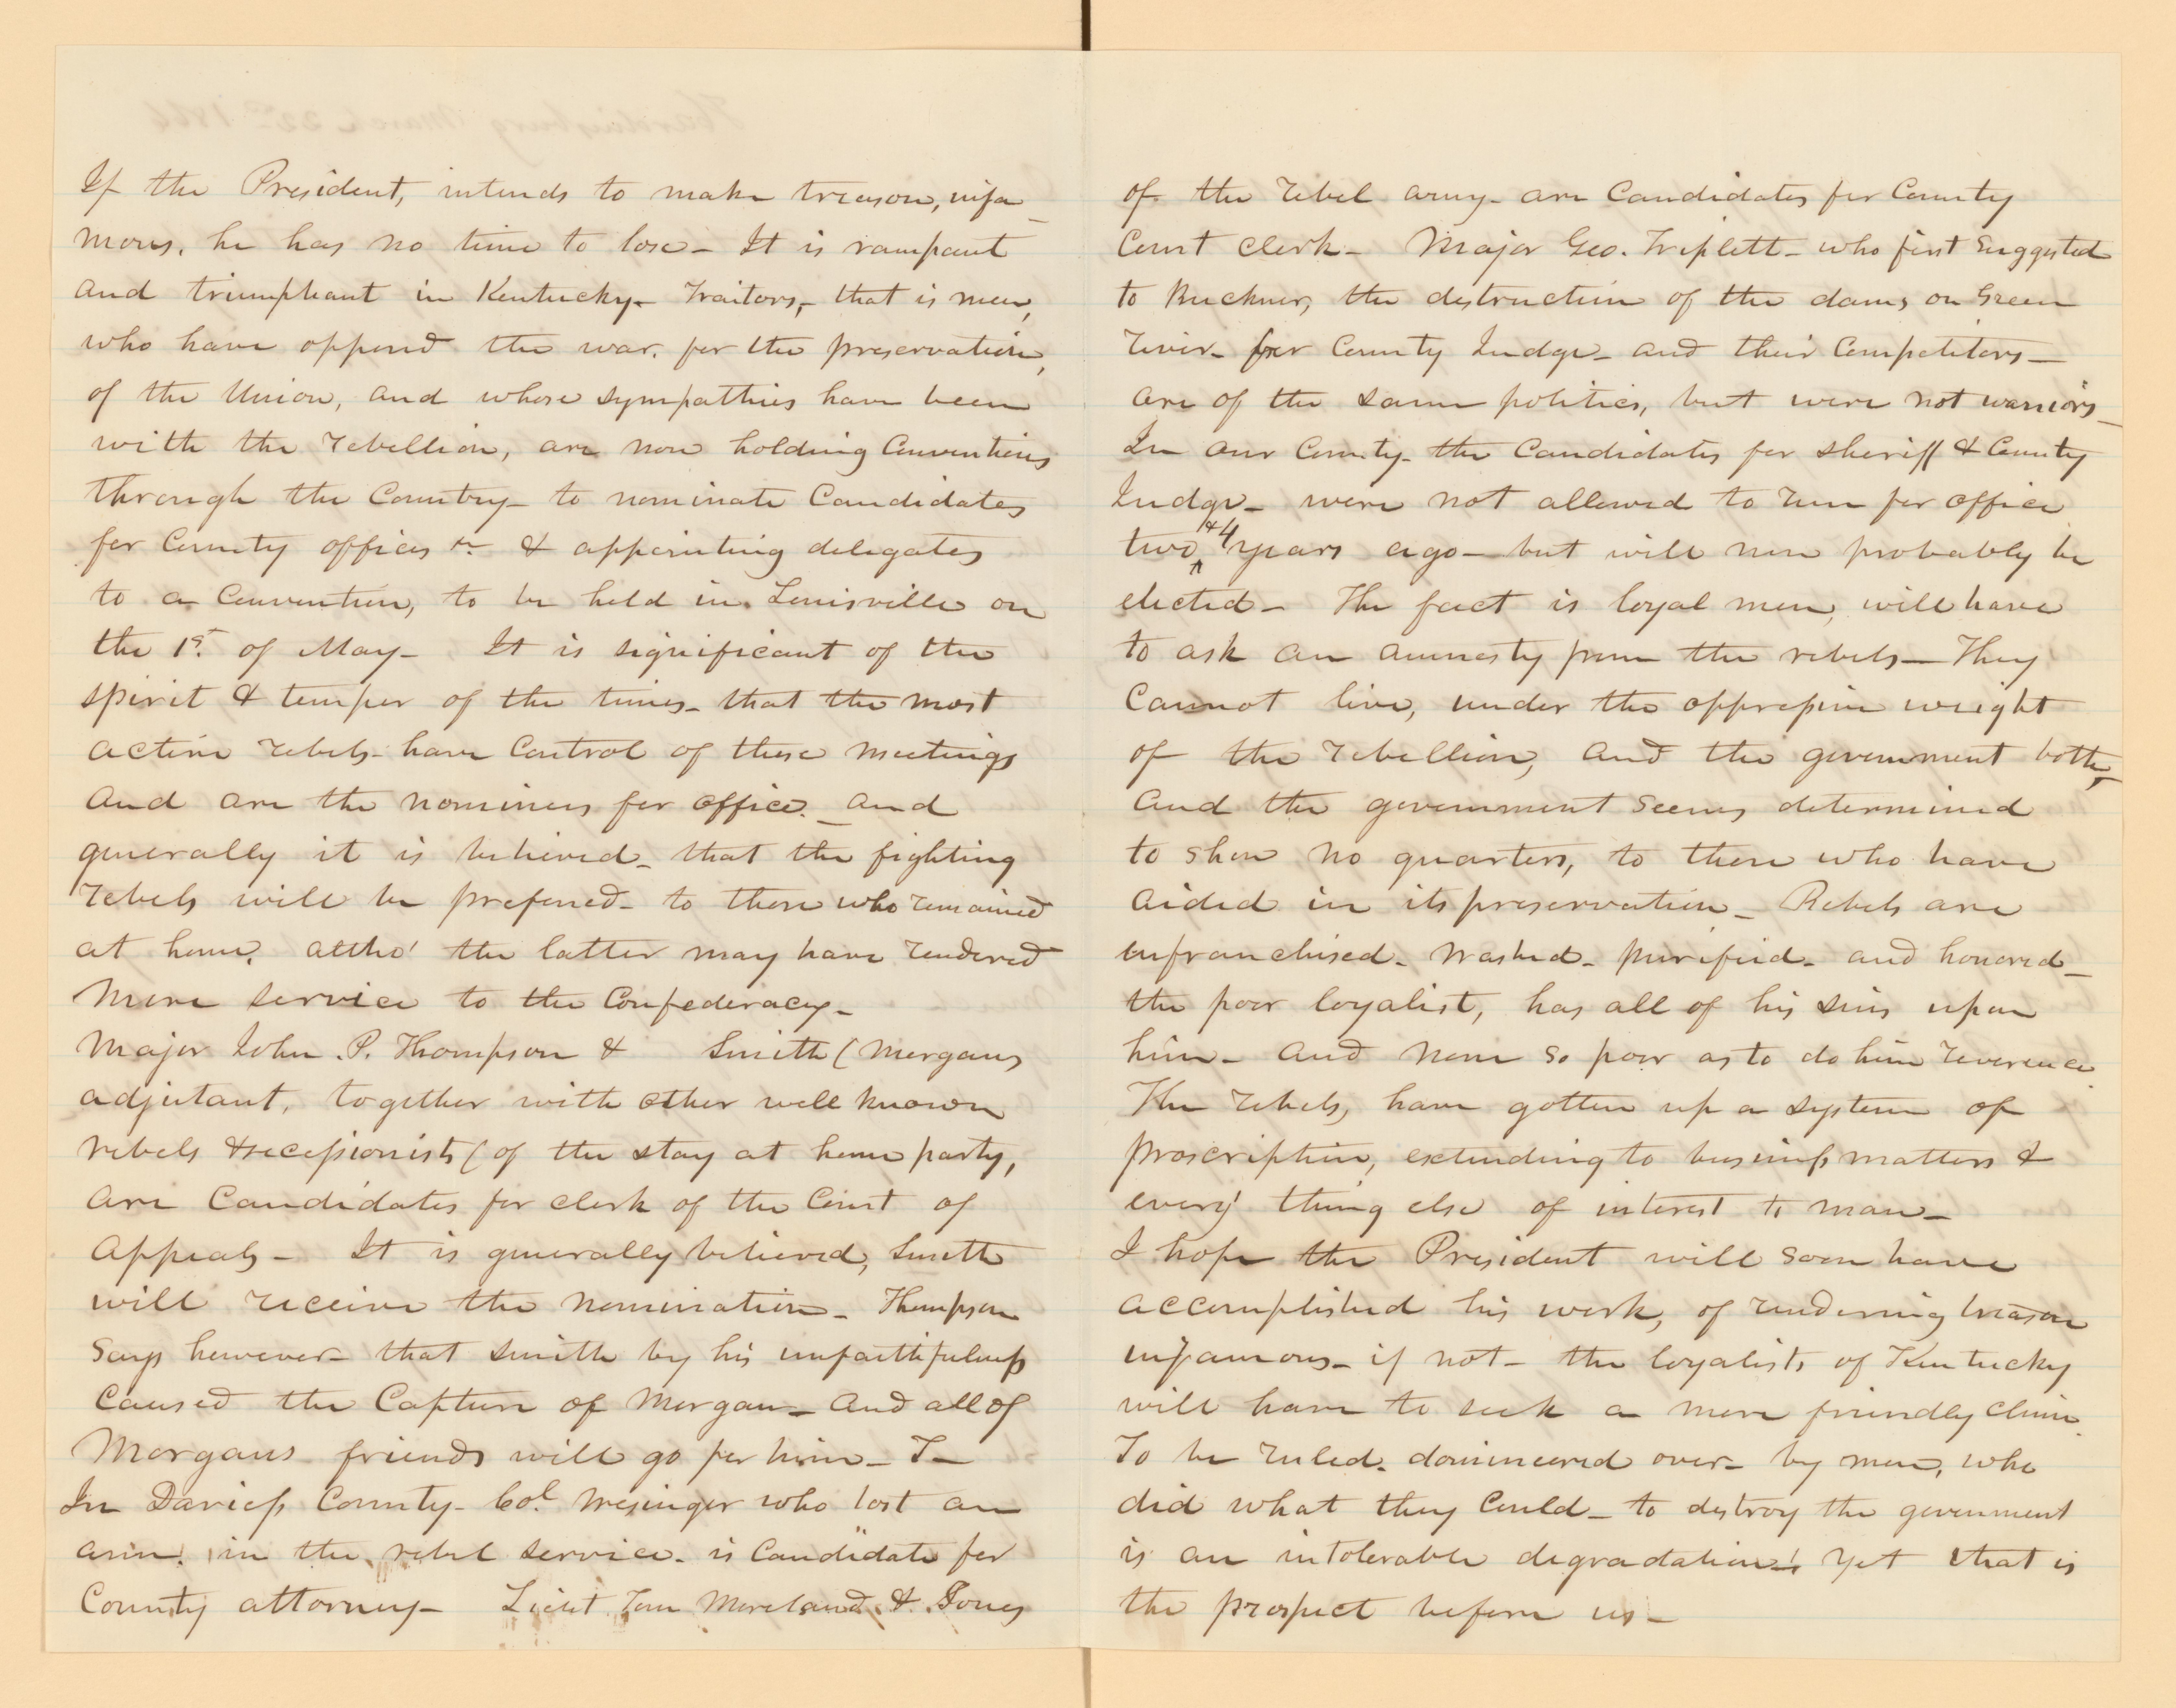 If the President, intends to make treason, infa-
mous, he has no time to lose - It is rampant
and triumphant in Kentucky - Traitors, - that is men,
who have opposed the war, for the preservation,
of the Union, and whose sympathies have been
with the rebellion, are now holding Conventions
through the Country - to nominate Candidates
for County offices & appointing delegates
to a Convention, to be held in Louisville on
the 1st. of May - It is significant of the
spirit & temper of the times - that the most
active rebels - have Control of these meetings
and are the nominees for office. - and
generally it is believed - that the fighting
rebels will be preferred - to those who remained
at home, altho' the latter may have rendered
more service to the Confederacy -
Major John. P. Thompson & Smith (Morgans
adjutant, together with other well known
rebels & secessionists (of the stay at home party,
are Candidates for clerk of the Court of
Appeals - It is generally believed, Smith
will receive the nomination - Thompson
says however - that Smith by his unfaithfulness
Caused the Capture of Morgan - and all of
Morgans friends will go for him - T -
In Daviess County - Col. who lost an
arm, in the rebel service - is Candidate for
County attorney - Lieut Tom Moreland & Jones
of the rebel army - are Candidates for County
Court Clerk - Major Geo. Triplett - who first suggested
to Buckner, the destruction of the dams on Green
river - for County Judge - and their Competitors -
are of the same politics, but were not warriors -
In our County - the Candidates for sheriff & County
Judge - were not allowed to run for office
two & 4 years ago - but will now probably be
elected - The fact is loyal men, will have
to ask an amnesty from the rebels - They
Cannot live, under the oppressive weight
of the rebellion, and the government both,
and the government seems determined
to show no quarters, to those who have
aided in its preservation - Rebels are
enfranchised - washed - purified - and honored -
the poor loyalist, has all of his sins upon
him - and none so poor as to do him reverence
The rebels, have gotten up a system of
proscription, extending to business matters &
every thing else of interest to man -
I hope the President will soon have
accomplished his work, of rendering treason
infamous - if not - the loyalists of Kentucky
will have to seek a more friendly clime.
To be ruled - domineered over - by men, who
did what they Could - to destroy the government
is an intolerable degradation! yet that is
the prospect before us -